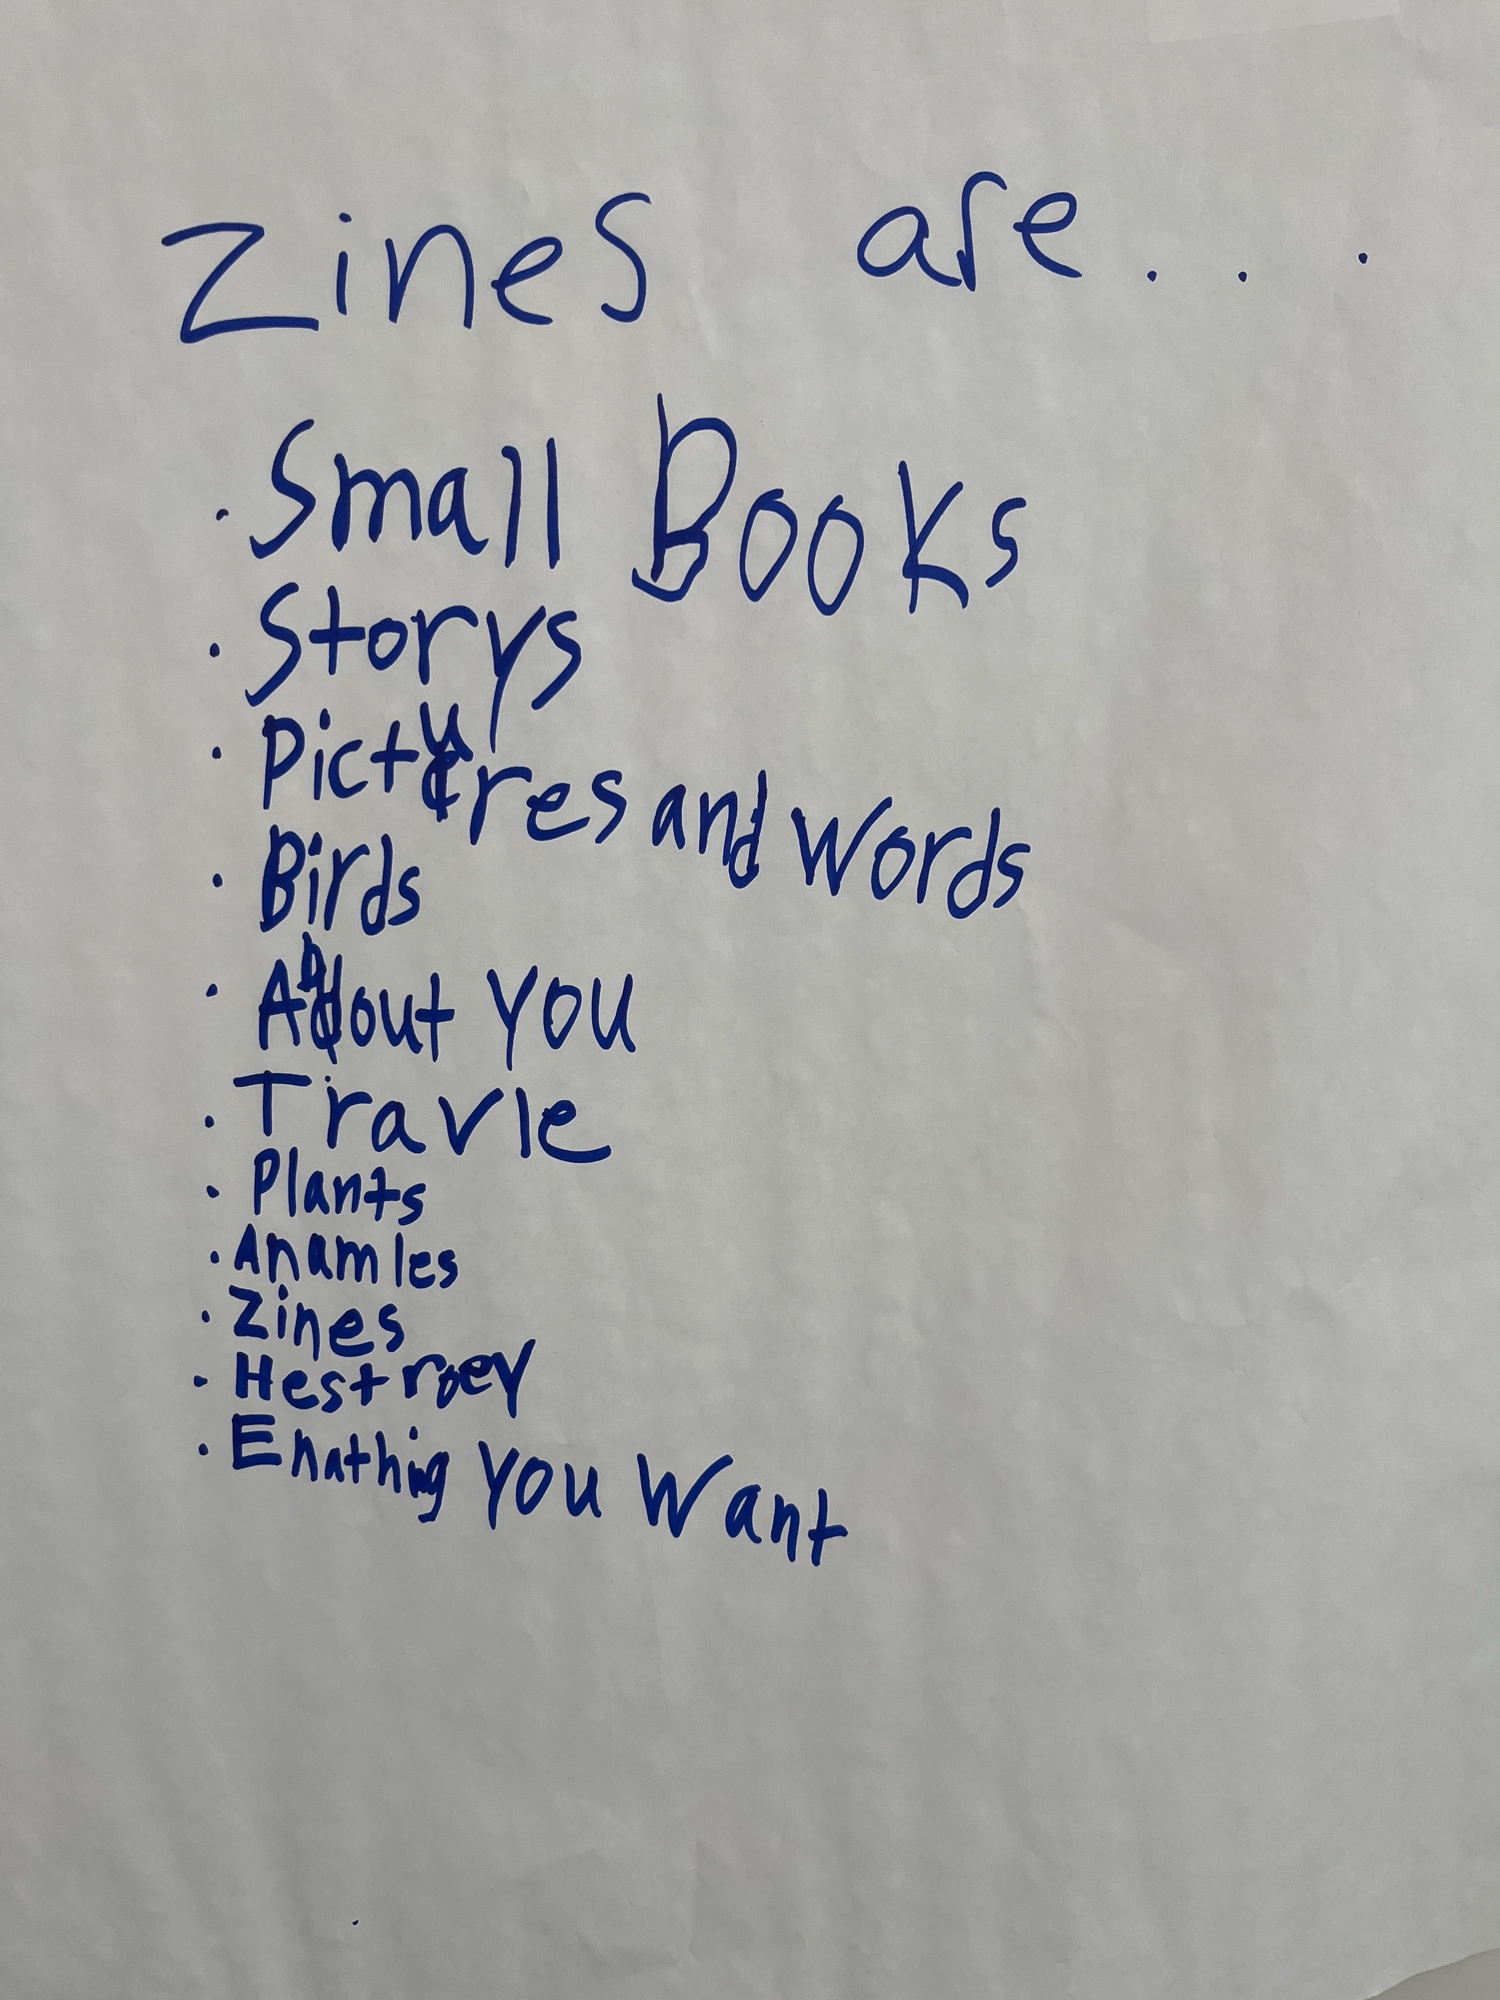 Zines are...
· Small Books
· Storys
· Pictures and words
· Birds
· About you
· Travle
· Plants
· Anamles
· Zines
· Hestroey
· Enathing you want